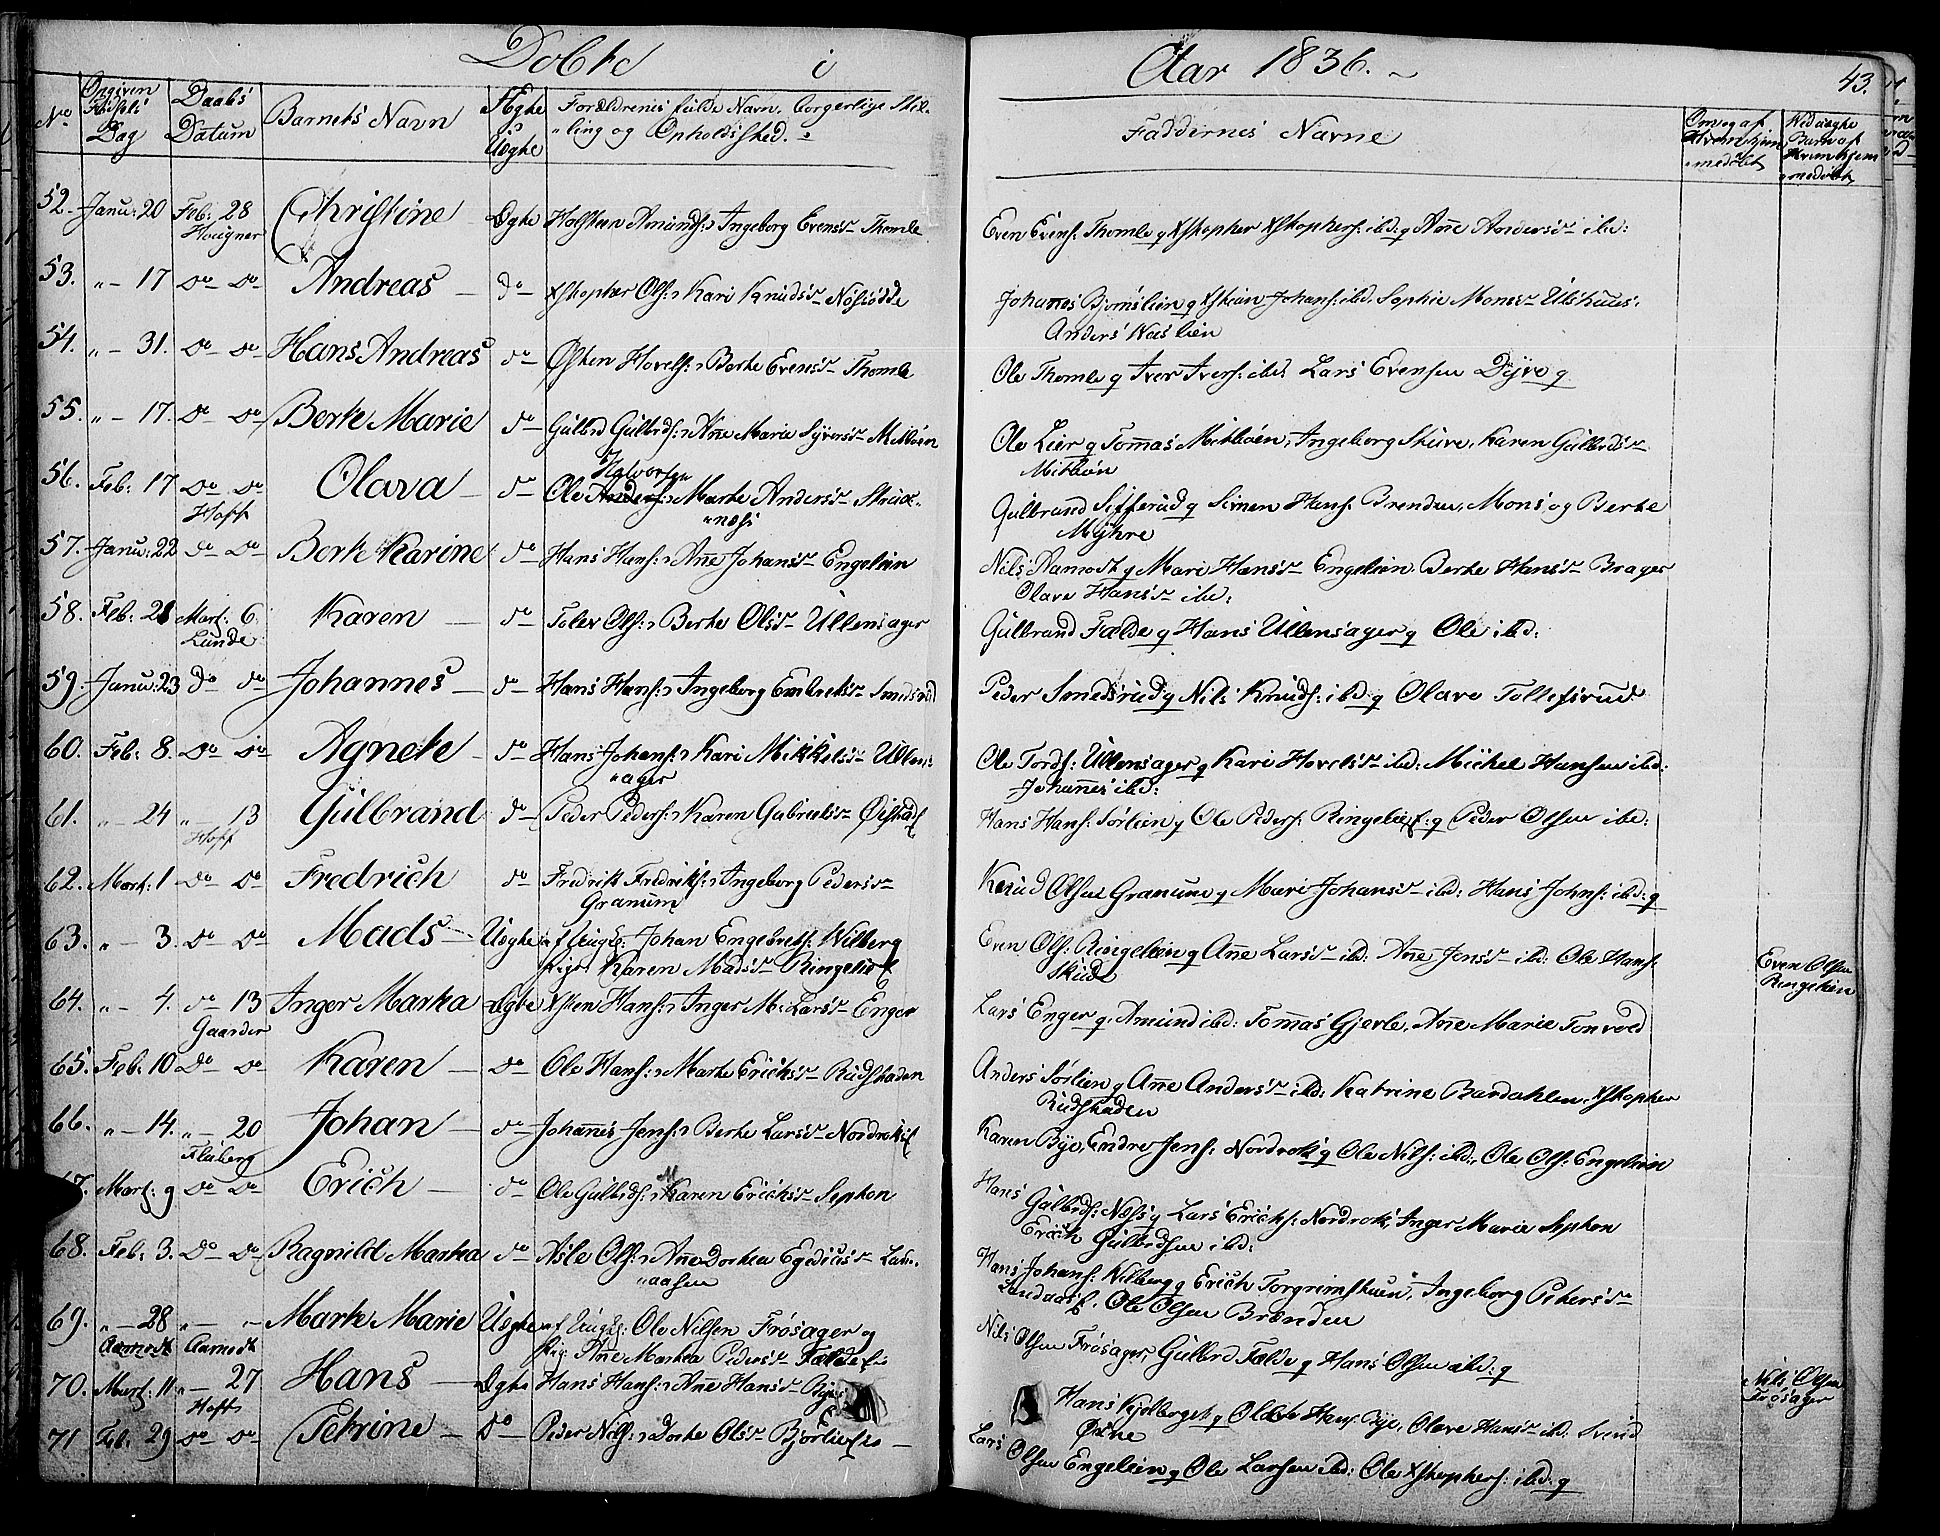 Døbte i Aar 1836.
43.
No
Angiven Fødsels Dag
Daabs Datum
Barnets Navn
Ægte Uægte
Forældrenes fulde Navn, borgerlige Stilling og Opholdssted.
Faddernes Navne
52. Janu: 20 Feb: 28 Christine Ægte Halsteen Amunds: Ingeborg Evensd Thomle
Hougner
Even Evens: Thomle og Xstopher Xstophers: ibd: og Añe Andersd ibd:
53. " 17 do do Andreas do Xstopher Ols: Kari Knudsd Nøssødde
Johannes Bjørnslien og Xstian Johans: ibd. Sophie Monsd Ulshuus:
Anders Naslien
54. " 31. do do Hans Andreas do Østen Hovels: Berte Evensd Thomle
Ole Thomle og Iver Ivers: ibd: Lars Evensen Dyve og
55. " 17. do do Berte Marie do Gulbrd Gulbrds: Añe Marie Syversd Mitbøen
Ole Lier og Tom̃as Mitbøen, Ingeborg Skure, Karen Gulbrdsd
Mitbøn
56. Feb: 17 do do Olava do Ole Halvorsen Marte Andersd
Hoff
Gulbrand Sifferud og Simen Hans: Brenden, Mons og Berte
Myhre
57. Janu: 22 do do Berte Karine do Hans Hans: Añe Johansd Engelien
Nils Aamodt og Mari Hansd Engelien, Berte Hansd Brager
Olave Hansd ibd:
58. Feb: 21 Mart: 6. Karen do Tolev Ols: Berte Olsd Ullensager
Lunde
Gulbrand Fælde og Hans Ullensager og Ole ibd:
59. Janu: 23 do do Johannes do Hans Hans: Ingeborg Embretsd Smedsrud
Peder Smedsrud og Nils Knuds: ibd: og Olave Tollefsrud
60. Feb: 8. do do Agnete do Hans Johans: Kari Mikkelsd Ullens
ager
Ole Tords: Ullensager og Kari Hovelsd ibd: Michel Hansen ibd:
Johañes ibd:
61. " 24 " 13 Gulbrand do Peder Peders: Karen Gabrielsd
Hoff
Hans Hans: Sørlien og Ole Peders: Ringelie og Peder Olsen ibd:
62. Mart: 1 do do Fredrich do Fredrik Fredriks: Ingeborg Pedersd
Granum
Knud Olsen Granum og Mari Johansd ibd: Hans Johns: ibd: og
63. " 3. do do Mads Uægte af Ungk: Johan Engebrets: Wilberg
Pige Karen Madsd Ringelie
Even Ols: Ringelien og Añe Larsd ibd: Añe Jensd ibd: Ole Hans:
Even Olsen
Ringelien
64. " 4. do 13 Inger Marta Ægte Xsten Hans: Inger M: Larsd Enger
Gaarder
Lars Enger og Amund ibd: Tom̃as Gjerle, Añe Marie Tonvold
65. Feb: 10 do do Karen do Ole Hans: Marte Erichsd Rudstaden
Anders Sørlien og Añe Andersd ibd: Katrine Bardahlen, Xstopher
Rudstaden
66. " 14. " 20 Johan do Johañes Jens: Berte Larsd
Fluberg
Karen Bye, Endre Jens: og Ole Nils: ibd:, Ole Ols: Engelien
67. Mart: 9 do do Erich do Ole Gulbrds: Karen Erichsd Sephon
Hans Gulbrds: Næss og Lars Erichs: Inger Marie Sephon
Erich Gulbrdsen ibd:
68. Feb: 3. do do Ragnild Martea do Asle Ols: Añe Dortea Egediusd Lan-
daasen
Hans Johans: Wilberg og Erich Torgrimstuen, Ingeborg Petersd
Ole Olsen Brænden
69. " 28 " " Marte Marie Uægte af Ungk: Ole Nilsen Frøsager og
Aamodt Aamodt
Pig: Añe Martea Pedersd Fælde
Nils Olsen Frøsager, Gulbrd Fælde og Hans Olsen ibd: og
70. Mart: 11 " 27 Hans Ægte Hans Hans: Añe Hansd Bye
Hoff
Hans og Bye, Olave Hansd ibd: Svend
Nils Olsen
Frøsager
71 Feb: 29 do do Petrine do Peder Nils: Dorte Olsd
Lars Olsen Engelien og Ole Larsen ibd: Ole Xstophers: ibd: og